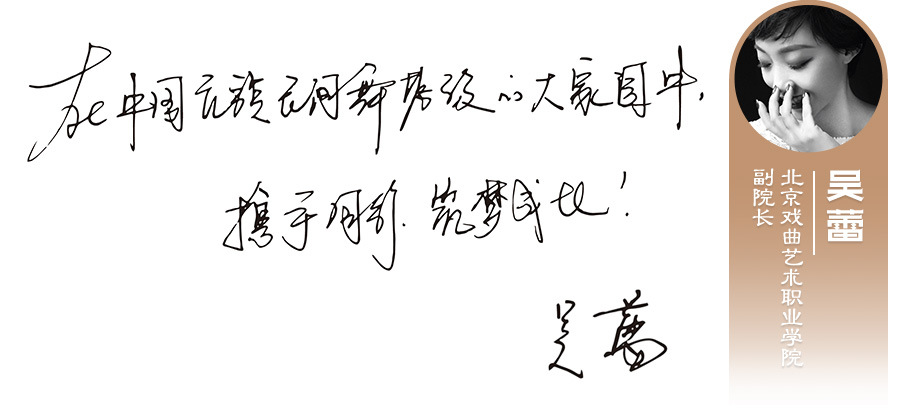 在中国民族民间舞等级的大家园中，
携手同行.筑梦成长！
吴蕾
吴蕾
北京戏曲艺术职业学院
副院长